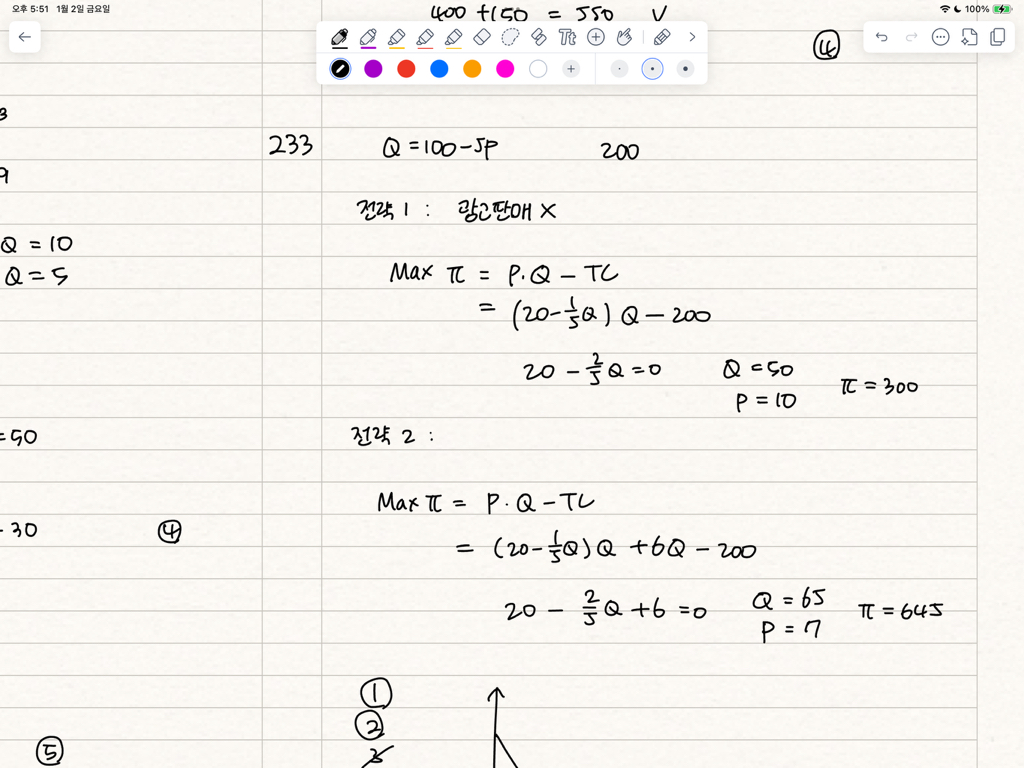 오후 5:51 1월 2일 금요일
100%
400 + 150 = 550 V
④
Tt
3
9
Q = 10
Q = 5
= 50
- 30 ④
⑤
233 Q = 100 - 5P 200
전략 1 : 광고판매 X
Max π = P.Q - TC
= (20 - 1/5Q) Q - 200
20 - 2/5Q = 0 Q = 50
P = 10 π = 300
전략 2 :
Max π = P.Q - TC
= (20 - 1/5Q)Q + 6Q - 200
20 - 2/5Q + 6 = 0 Q = 65 π = 645
P = 7
①
②
3